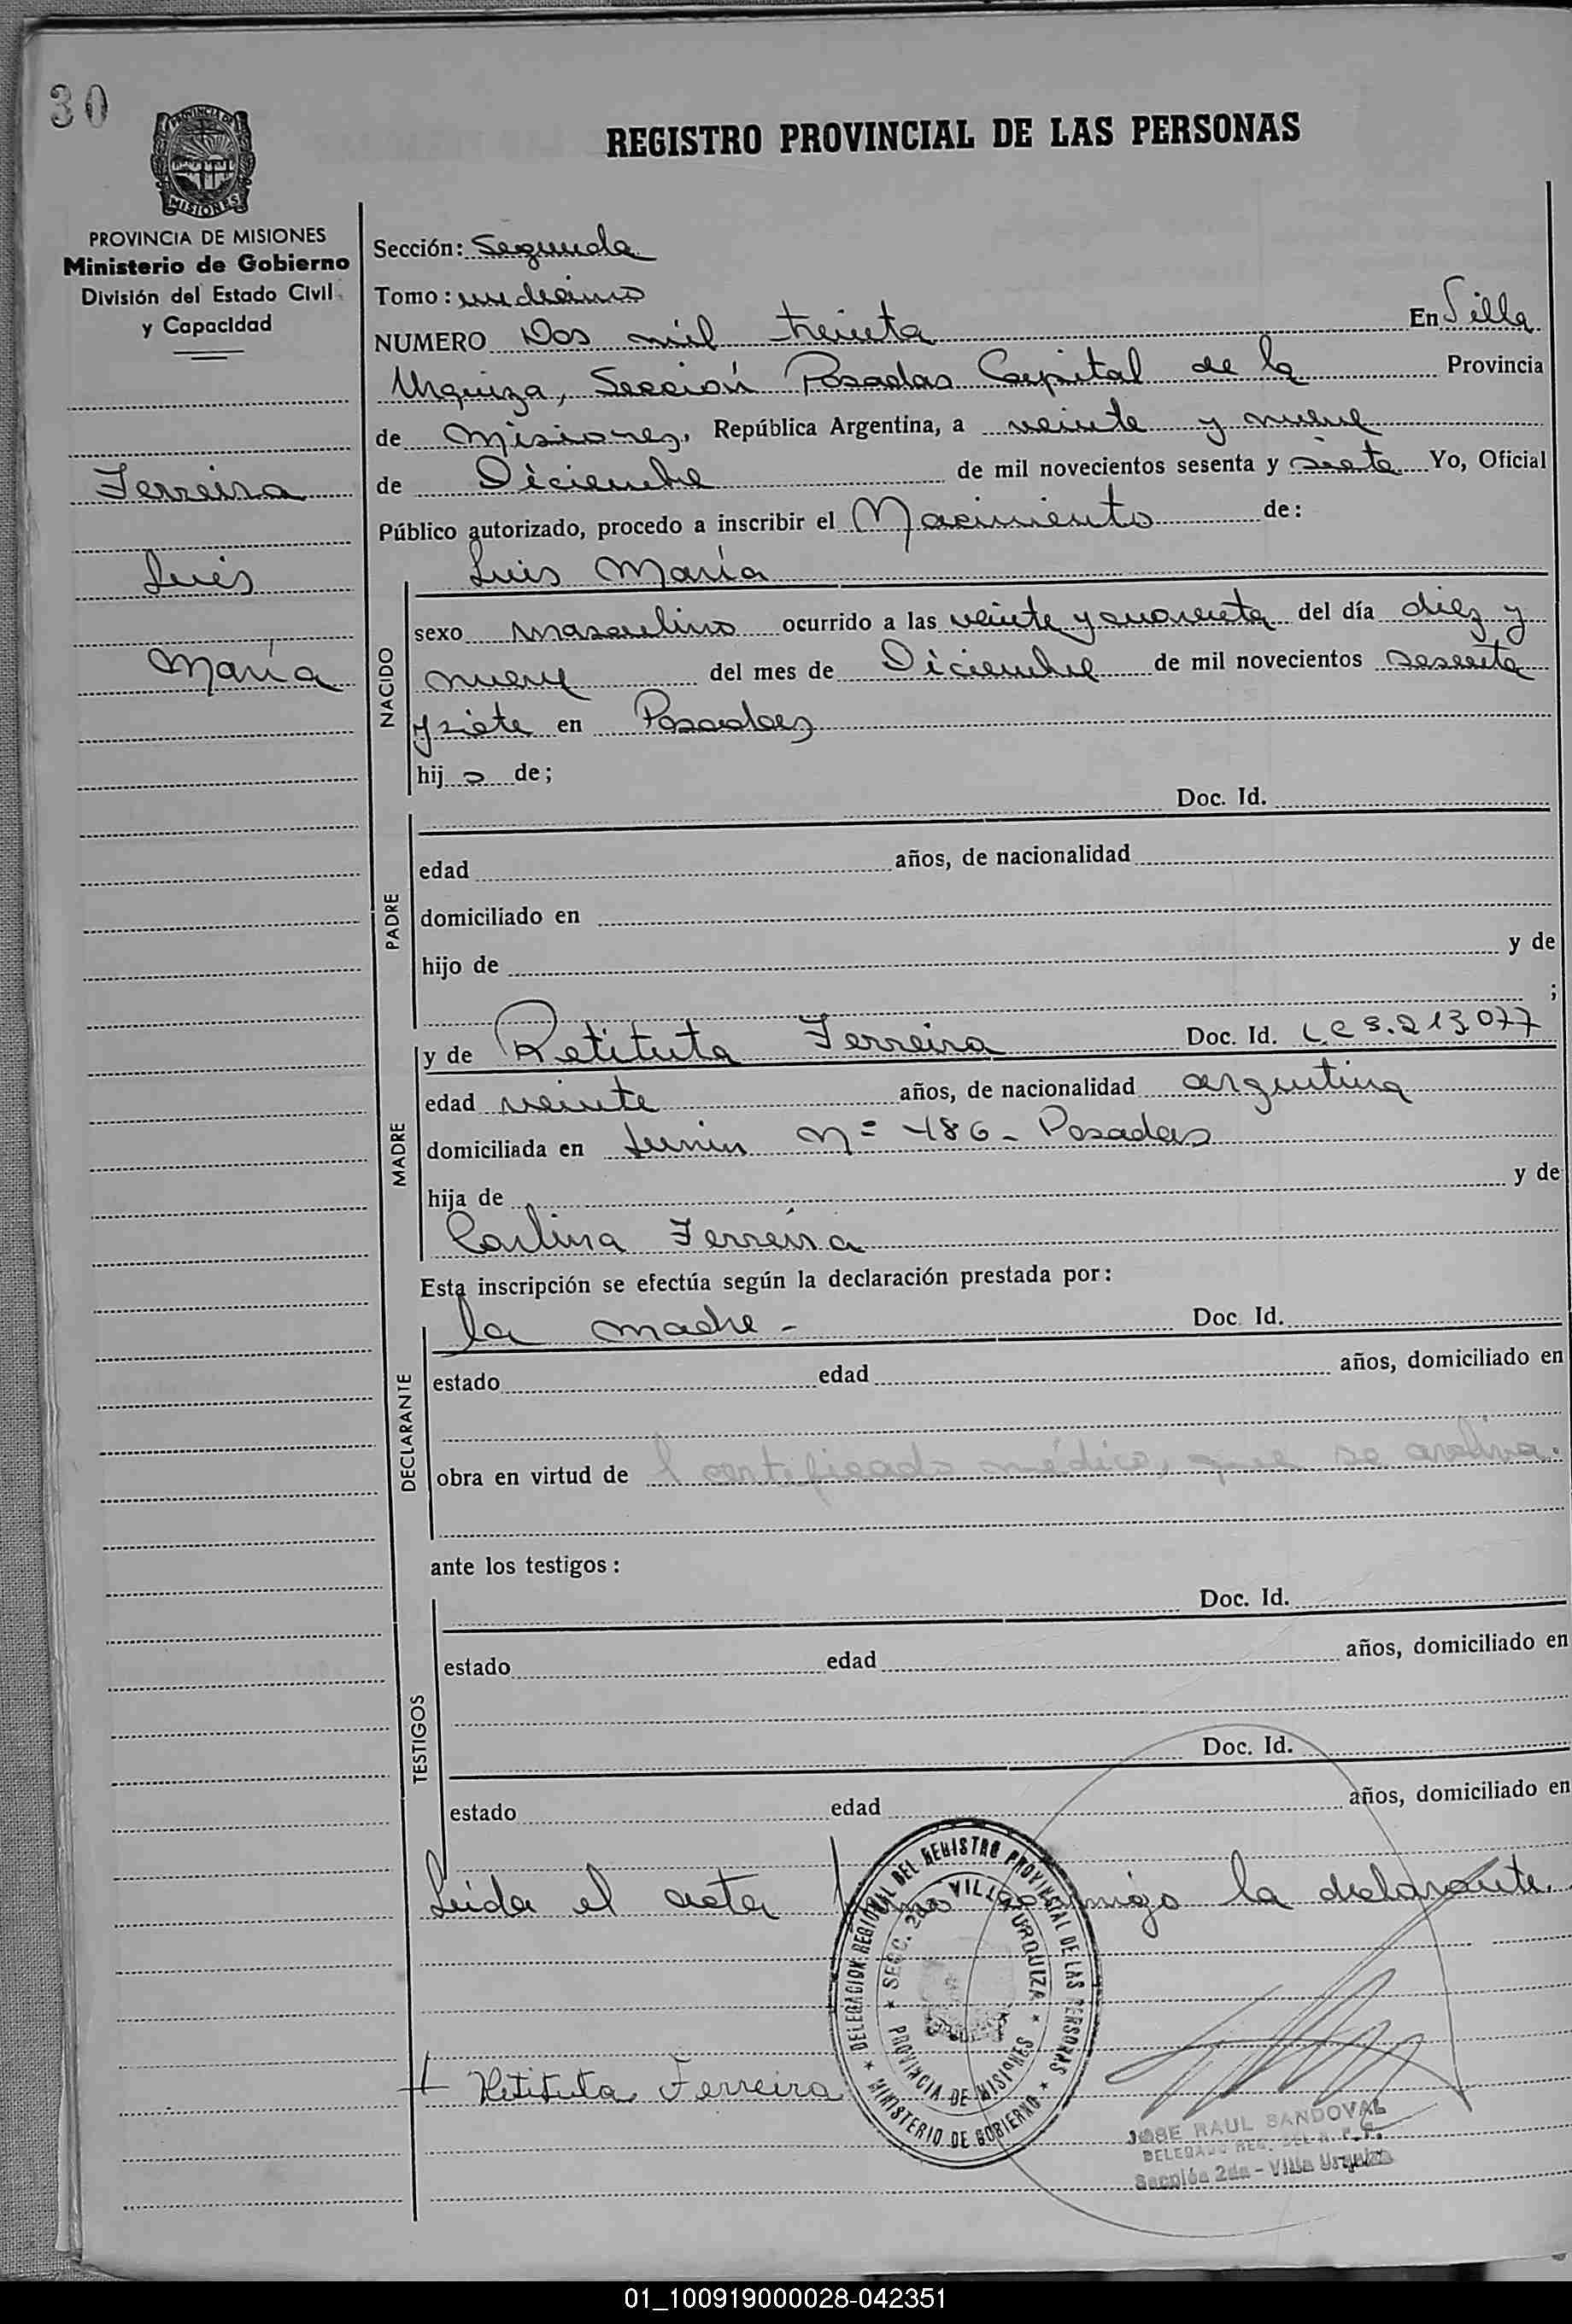 30
PROVINCIA DE
MISIONES
REGISTRO PROVINCIAL DE LAS PERSONAS
PROVINCIA DE MISIONES
Ministerio de Gobierno
División del Estado Civil
y Capacidad
Ferreira
Luis
María
Sección: Segunda
Tomo: undécimo
NUMERO Dos mil treinta En Villa
Urquiza, Sección Posadas Capital de la Provincia
de Misiones, República Argentina, a veinte y nueve
de Diciembre de mil novecientos sesenta y siete Yo, Oficial
Público autorizado, procedo a inscribir el Nacimiento de:
Luis María
NACIDO
sexo masculino ocurrido a las veinte y cuarenta del día diez y
nueve del mes de Diciembre de mil novecientos sesenta
y siete en Posadas
hij o de;
PADRE
Doc. Id.
edad años, de nacionalidad
domiciliado en
hijo de y de
;
MADRE
y de Retituta Ferreira Doc. Id. LC 5.213.077
edad veinte años, de nacionalidad argentina
domiciliada en Junin nº 486 - Posadas
hija de y de
Carlina Ferreira
Esta inscripción se efectúa según la declaración prestada por:
DECLARANTE
la madre - Doc. Id.
estado edad años, domiciliado en
obra en virtud de l certificado médico, que se archiva.
ante los testigos:
TESTIGOS
Doc. Id.
estado edad años, domiciliado en
Doc. Id.
estado edad años, domiciliado en
Leida el acta firma conmigo la declarante.
DELEGACION REGIONAL DEL REGISTRO PROVINCIAL DE LAS PERSONAS
MINISTERIO DE GOBIERNO
SECC. 2da VILLA URQUIZA
PROVINCIA DE MISIONES
Retituta Ferreira
JOSE RAUL SANDOVAL
DELEGADO REG. DEL R. P. P.
Sección 2da - Villa Urquiza
01_100919000028-042351